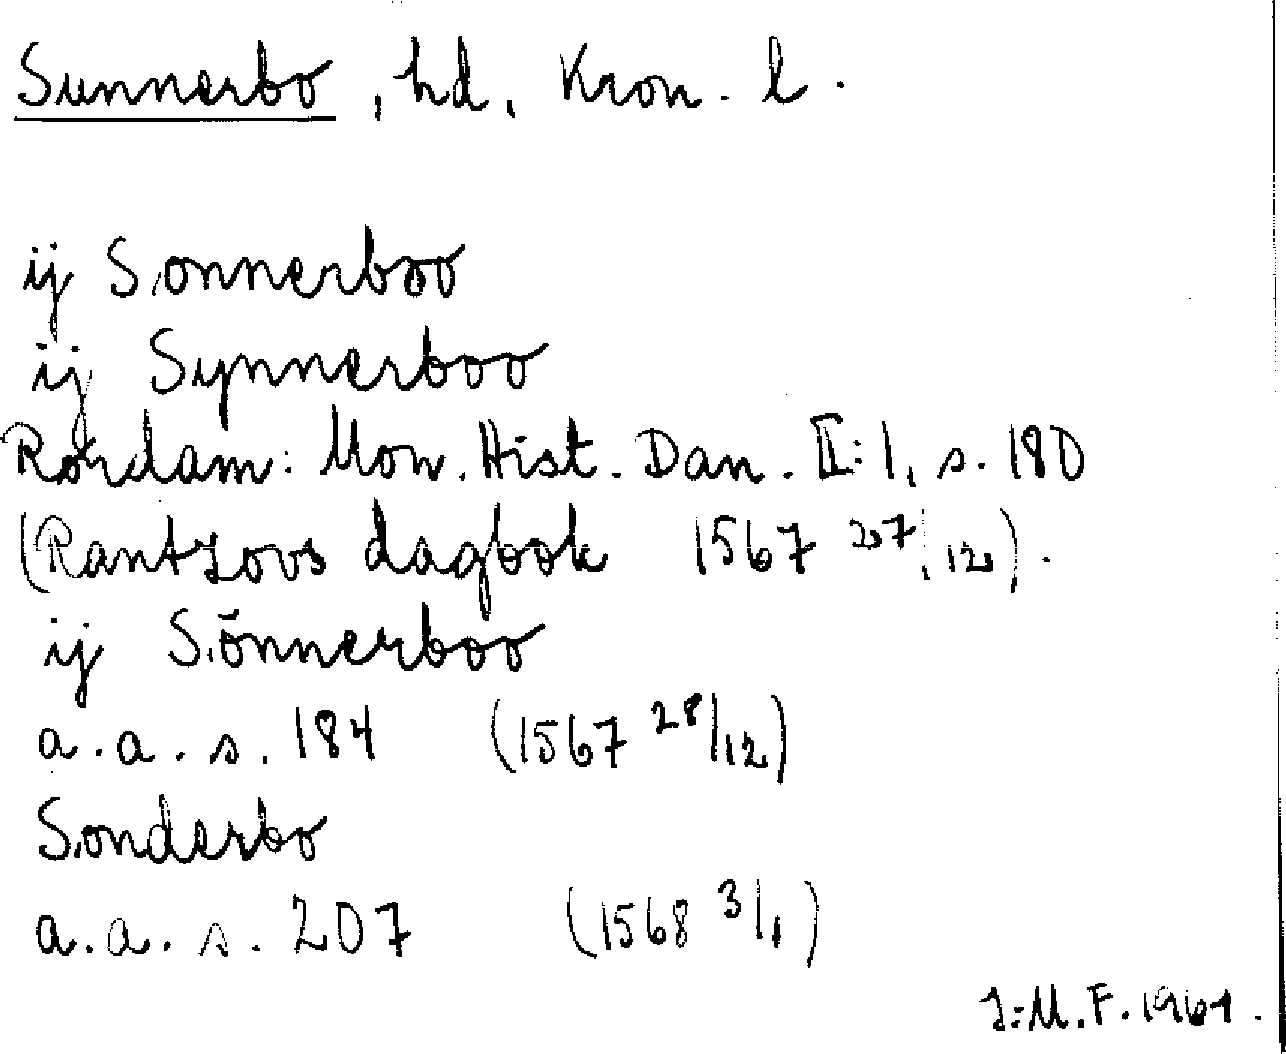 Sunnerbo, hd, Kron. l.
ij Sonnerboo
ij Synnerboo
Rørdam: Mon. Hist. Dan. II:1, s. 180
(Rantzovs dagbok 1567 27/12).
ij Sönnerboo
a.a. s. 184 (1567 28/12)
Sonderbo
a.a. s. 207 (1568 3/1)
I-M. F. 1961.